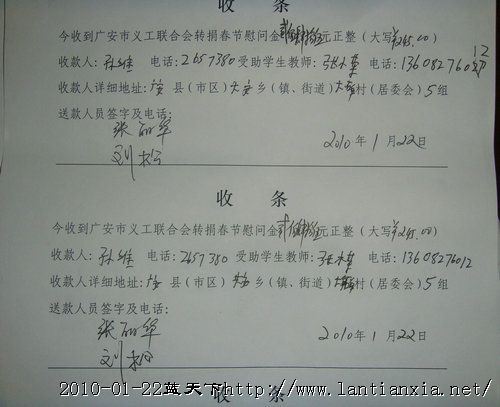 收 条
今收到广安市义工联合会转捐春节慰问金 元正整（大写 245.00）
收款人：孙维 电话：2657380 受助学生教师： 电话：13608276012
收款人详细地址：广安县（市区） 乡（镇、街道） 村（居委会）5组
送款人员签字及电话：
张丽华
刘松
2010年1月22日
收 条
今收到广安市义工联合会转捐春节慰问金 元正整（大写 245.00）
收款人：孙维 电话：2657380 受助学生教师： 电话：13608276012
收款人详细地址：广安县（市区） 乡（镇、街道） 村（居委会）5组
送款人员签字及电话：
张丽华
刘松
2010年1月22日
2010-01-22蓝天下http://www.lantianxia.net/
收 条